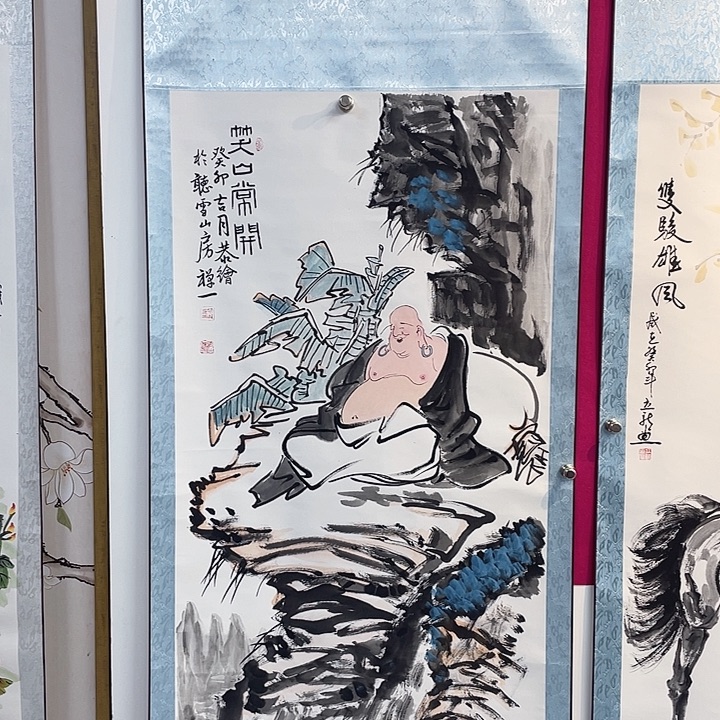 笑口常開
癸卯吉月恭繪
於聽雪山房禪一
雙駿雄風
歲在癸卯年